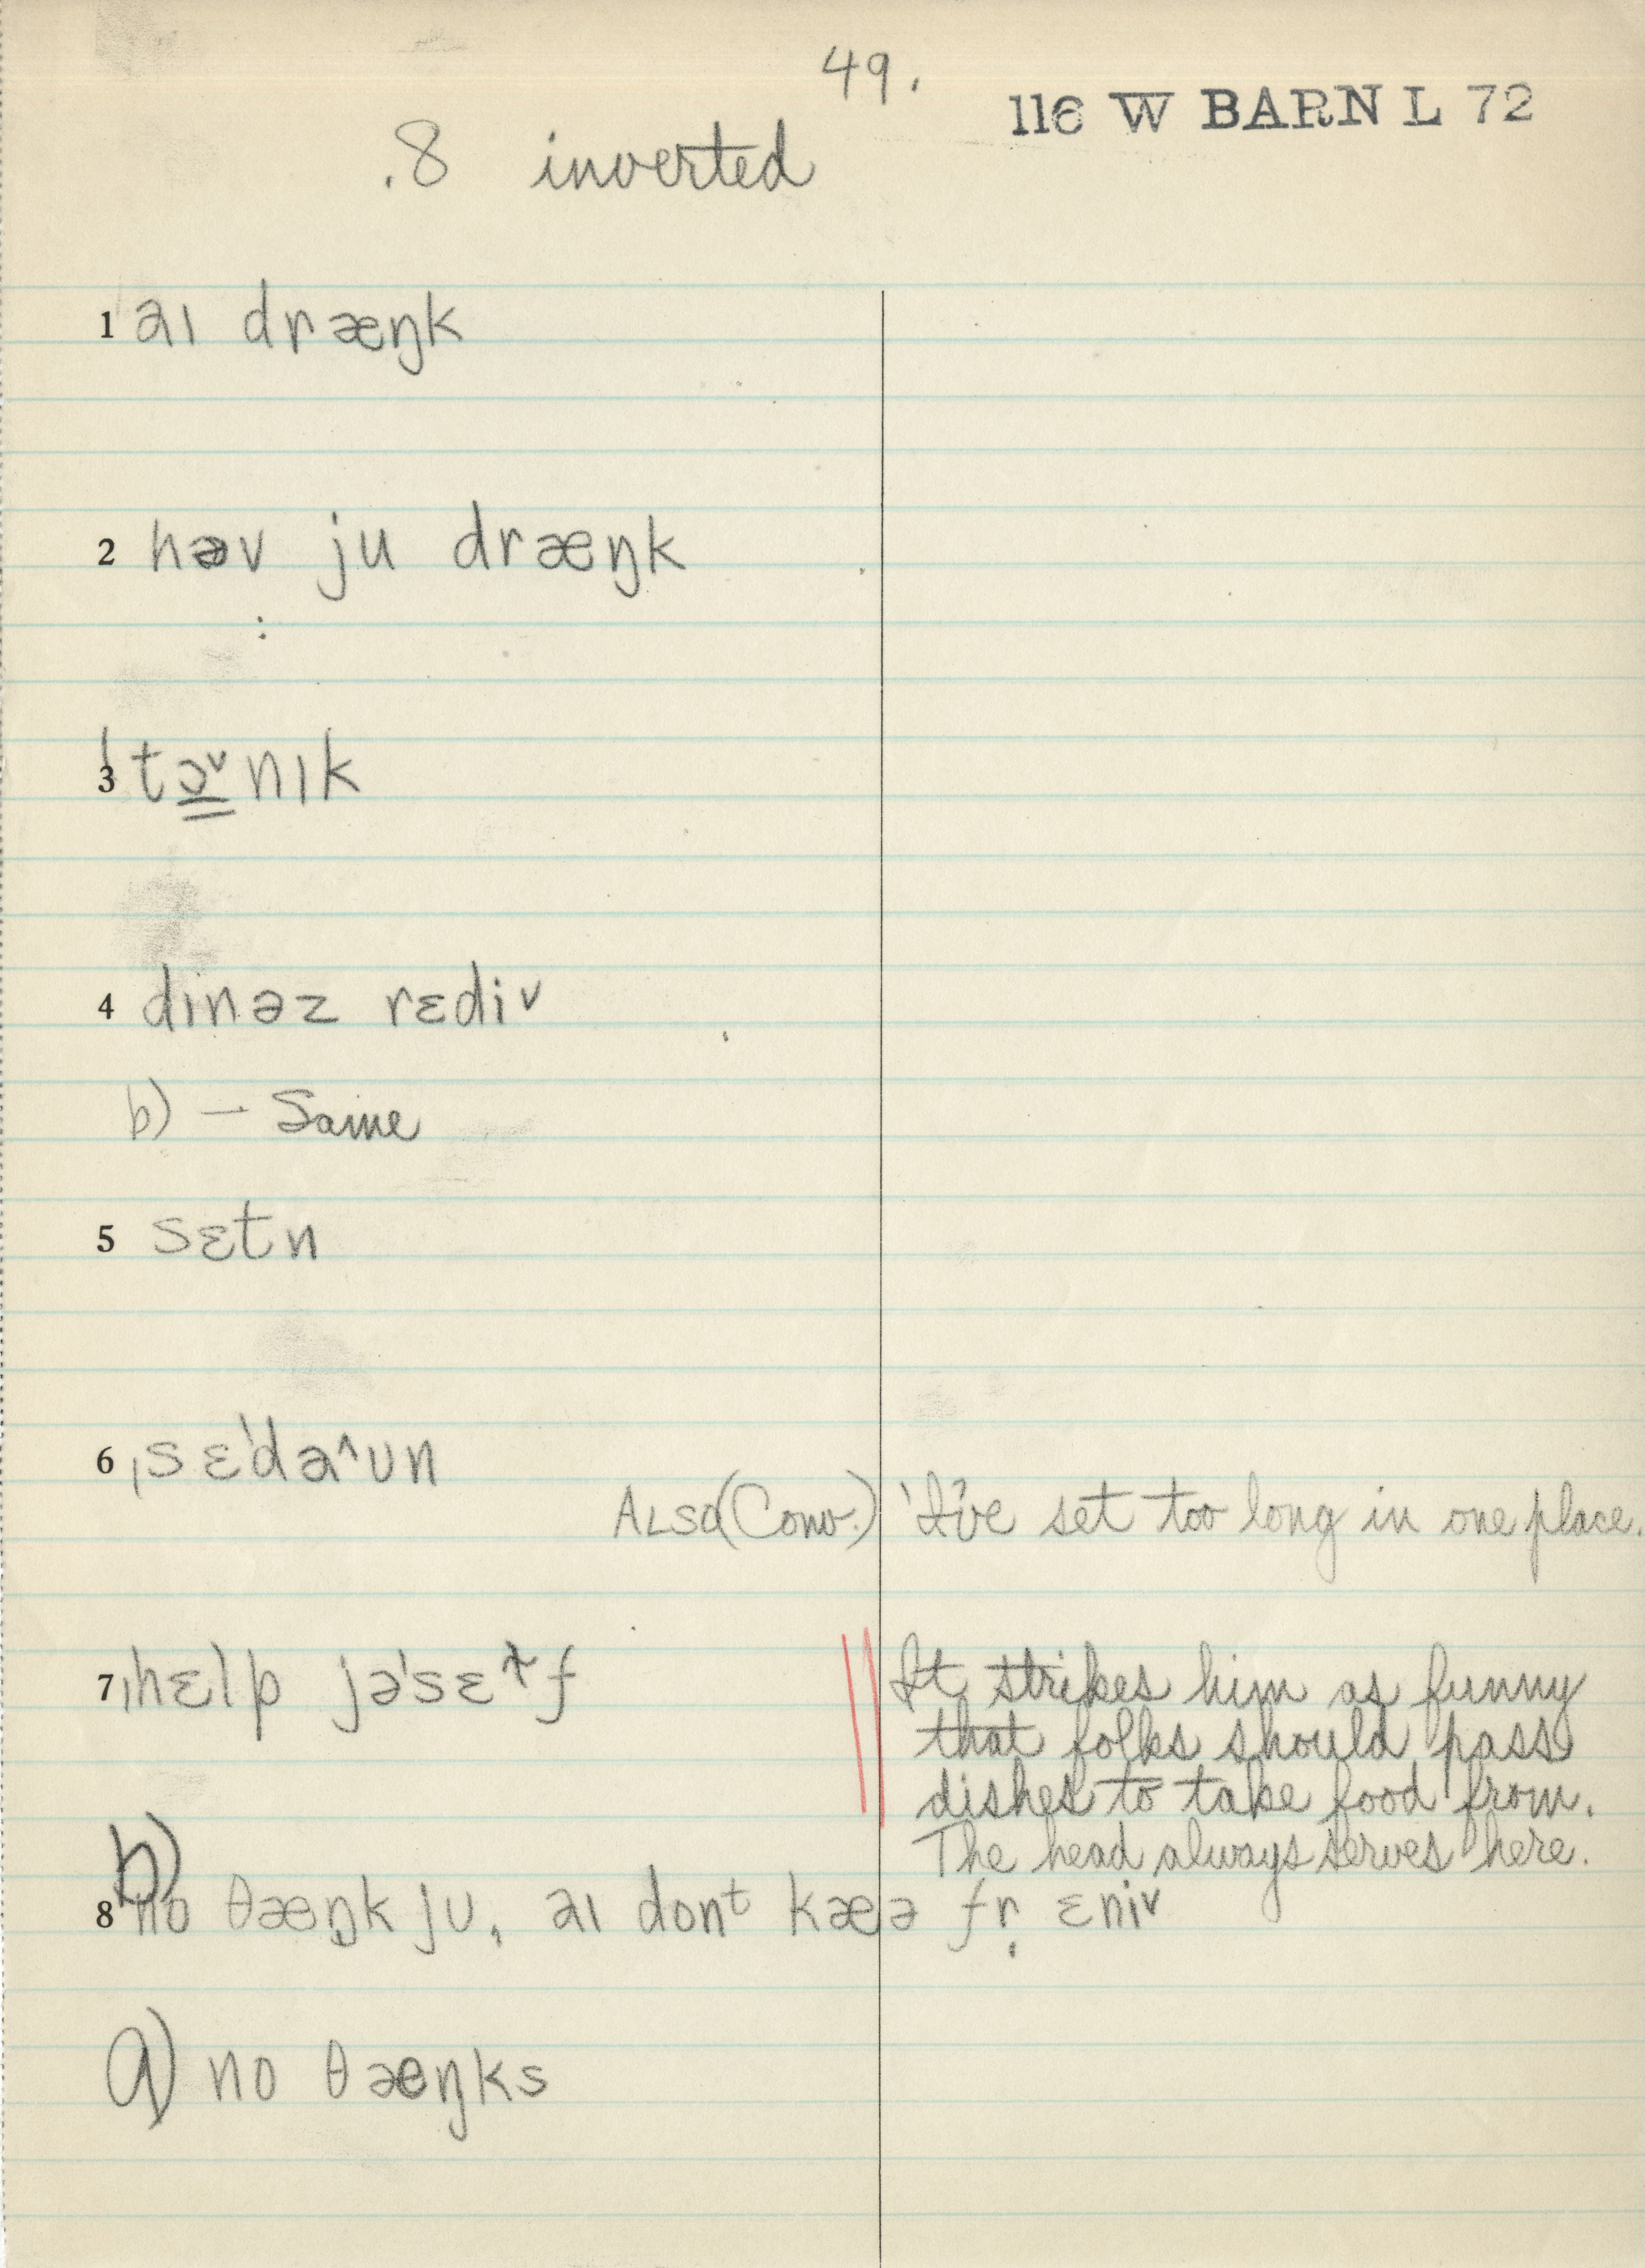 49.
116 W BARN L 72
.8 inverted
1 aɪ dræŋk
2 həv ju dræŋk
3 ˈtɔ̳ˇnɪk
4 dɪnəz rɛdiˇ
b) — Same
5 sɛtn
6 ˌsɛˈdaˆʊn
ALSO (Conv.) 'I've set too long in one place.
7 ˌhɛlp jəˈsɛɫf
It strikes him as funny
that folks should pass
dishes to take food from.
The head always serves here.
b)
8 no θæŋk ju, aɪ donᵗ kæə fr̩ ɛniˇ
a) no θæŋks